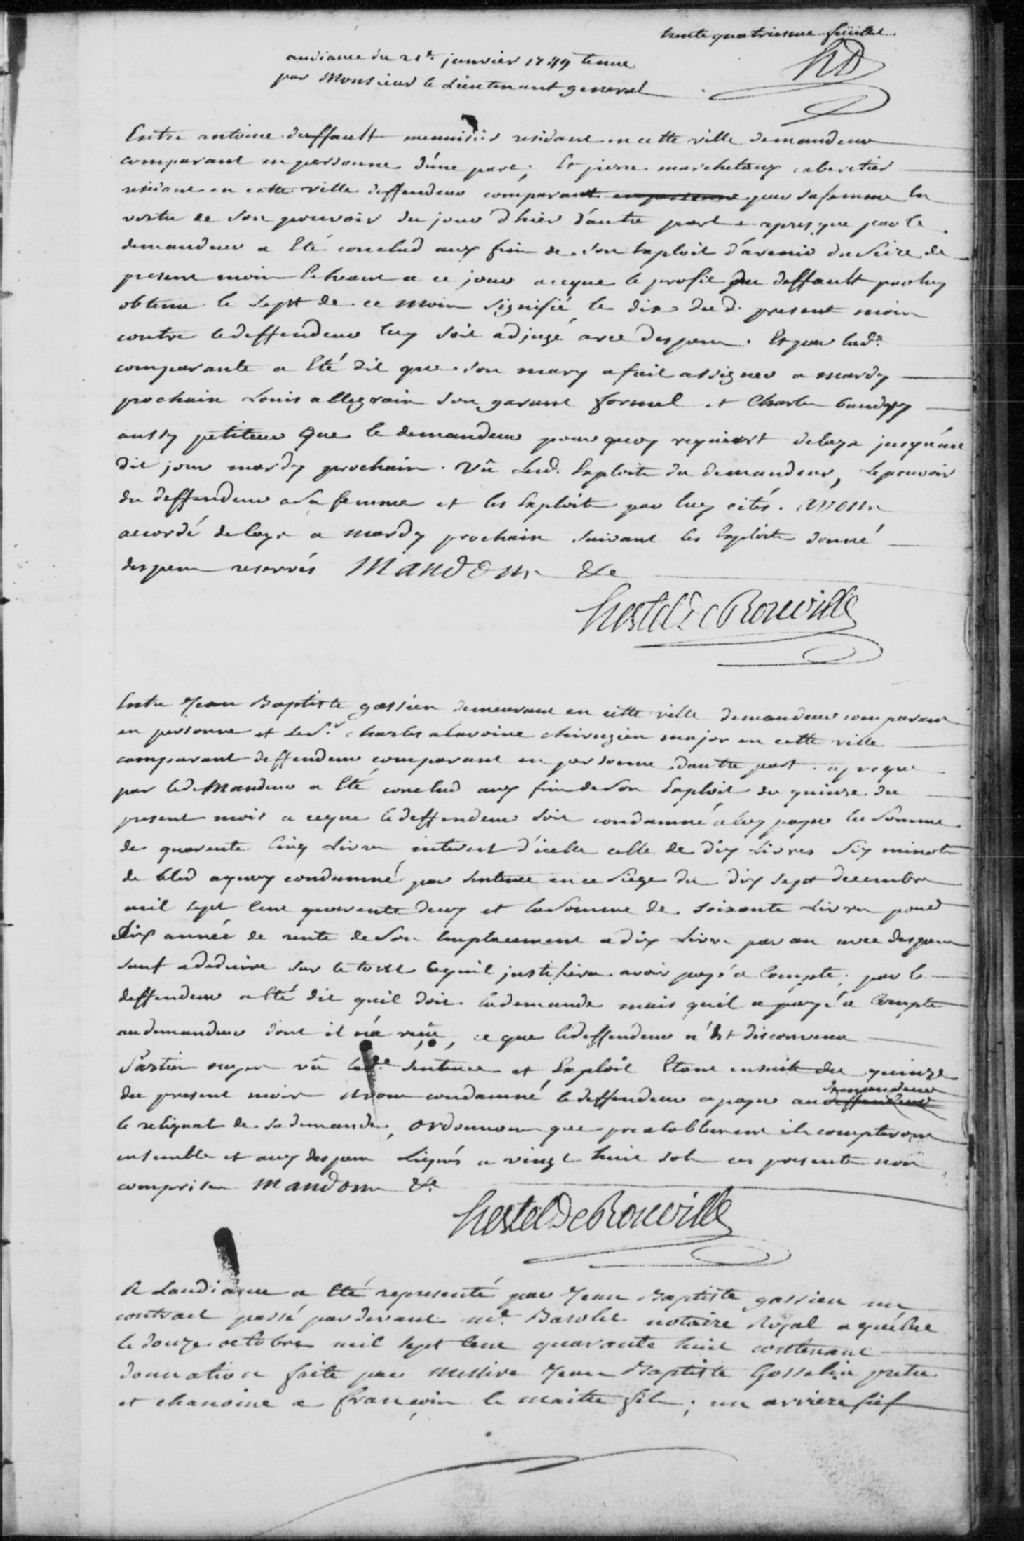 trente quatriesme feüillet
HD
audiance du 21e janvier 1749 tenue
par Monsieur le Lieutenant general
Entre antoine duffault menuisier residant en cette ville demandeur
comparant en personne d'une part; Et pierre marcheteau cabaretier
residant en cette ville deffendeur comparant en personne par sa femme En
vertu de son pouvoir du jour d'hier d'autre part apres que par le
demandeur a Eté conclud aux fin de son Exploit d'avenir du seize de
present mois Echeant a ce jour a ce que le profit du deffault par luy
obtenu le sept de ce mois signifié le dix dud. present mois
contre le deffendeur luy soit adjugé avec despens. Et par lad.
comparante a Eté dit que son mary a fait assigner a mardy
prochain Louis allegrain son garant formel et Charle
aussy petiteur que le demandeur pourquoy requiert delays jusqu'au
dit jour mardy prochain. Vû Led. Exploits du demandeur, le pouvoir
du deffendeur a sa femme et les Exploits par luy cités. avons
accordé delays a mardy prochain suivant les Exploits donné
despens reservés Mandons &c
hertel De Rouville
Entre Jean Baptiste gassien demeurant en cette ville demandeur comparant
en personne et le Sr. Charles alavoine chirurgien major en cette ville
comparant deffendeur comparant en personne dautre part. apres que
par le demandeur a Eté conclud aux fin de son Exploit du quinze du
present mois a ce que le deffendeur soit condamné a luy payer la somme
de quarente Cinq Livres interest d'icelle celle de dix Livres six minots
de bled a quoy condamné par sentence en ce siege du dix sept decembre
mil sept Cent quarente deux et la somme de soixante Livres pour
six année de rente de son Emplacement a dix Livres par an avec despens
sauf a deduire sur le tout ce quil justifira avoir payé a Compte; par le
deffendeur a Eté dit quil doit la demande mais quil a payé a Compte
au demandeur dont il n'a reçû, ce que le deffendeur n'est disconvenu
Parties ouyes vû lade sentence et Exploit Etant ensuit du quinze
du present mois avons condamné le deffendeur a payer au deffendeur demandeur
le reliquat de sa demande, ordonnons que prealablement ils compteront
ensemble et aux despens Liqués a vingt huit sols ces presente non
comprises Mandons &c
hertel De Rouville
A Laudiance a Eté representé par Jean Baptiste gassien un
contract passé pardevant me. Barolet notaire Royal a quebec
le douze octobre mil sept Cent quarante huit contenant
donnation faite par messire Jean Baptiste Gosselin pretre
et chanoine a françois le maitre fils; un arriere fief